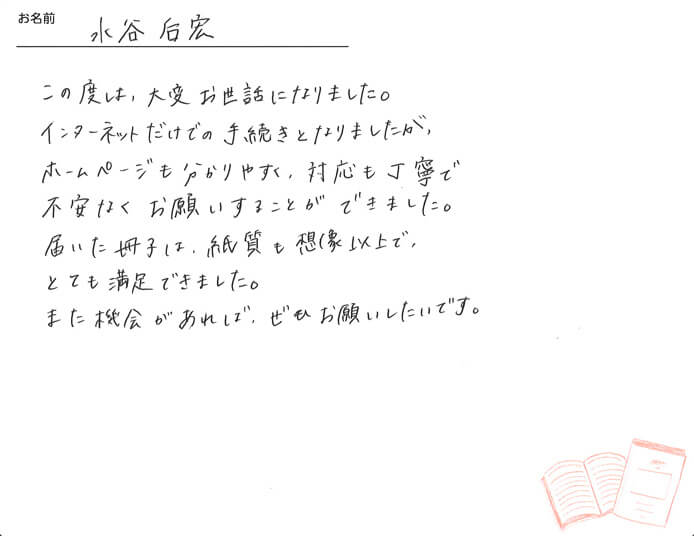 お名前
水谷 后宏
この度は、大変お世話になりました。
インターネットだけでの手続きとなりましたが、
ホームページも分かりやすく、対応も丁寧で
不安なくお願いすることができました。
届いた冊子は、紙質も想像以上で、
とても満足できました。
また機会があれば、ぜひお願いしたいです。